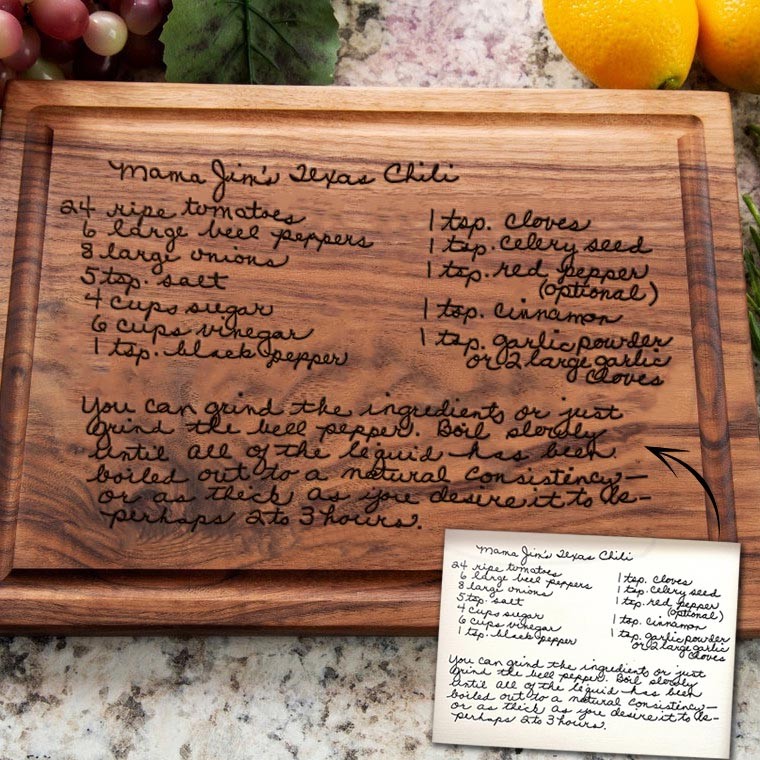 Mama Jim's Texas Chili
24 ripe tomatoes
6 large bell peppers
8 large onions
5 tsp. salt
4 cups sugar
6 cups vinegar
1 tsp. black pepper
1 tsp. cloves
1 tsp. celery seed
1 tsp. red pepper
(optional)
1 tsp. cinnamon
1 tsp. garlic powder
or 2 large garlic
cloves
You can grind the ingredients or just
grind the bell pepper. Boil slowly
until all of the liquid has been
boiled out to a natural consistency—
or as thick as you desire it to be—
perhaps 2 to 3 hours.
Mama Jim's Texas Chili
24 ripe tomatoes
6 large bell peppers
8 large onions
5 tsp. salt
4 cups sugar
6 cups vinegar
1 tsp. black pepper
1 tsp. cloves
1 tsp. celery seed
1 tsp. red pepper
(optional)
1 tsp. cinnamon
1 tsp. garlic powder
or 2 large garlic
cloves
You can grind the ingredients or just
grind the bell pepper. Boil slowly
until all of the liquid has been
boiled out to a natural consistency—
or as thick as you desire it to be—
perhaps 2 to 3 hours.